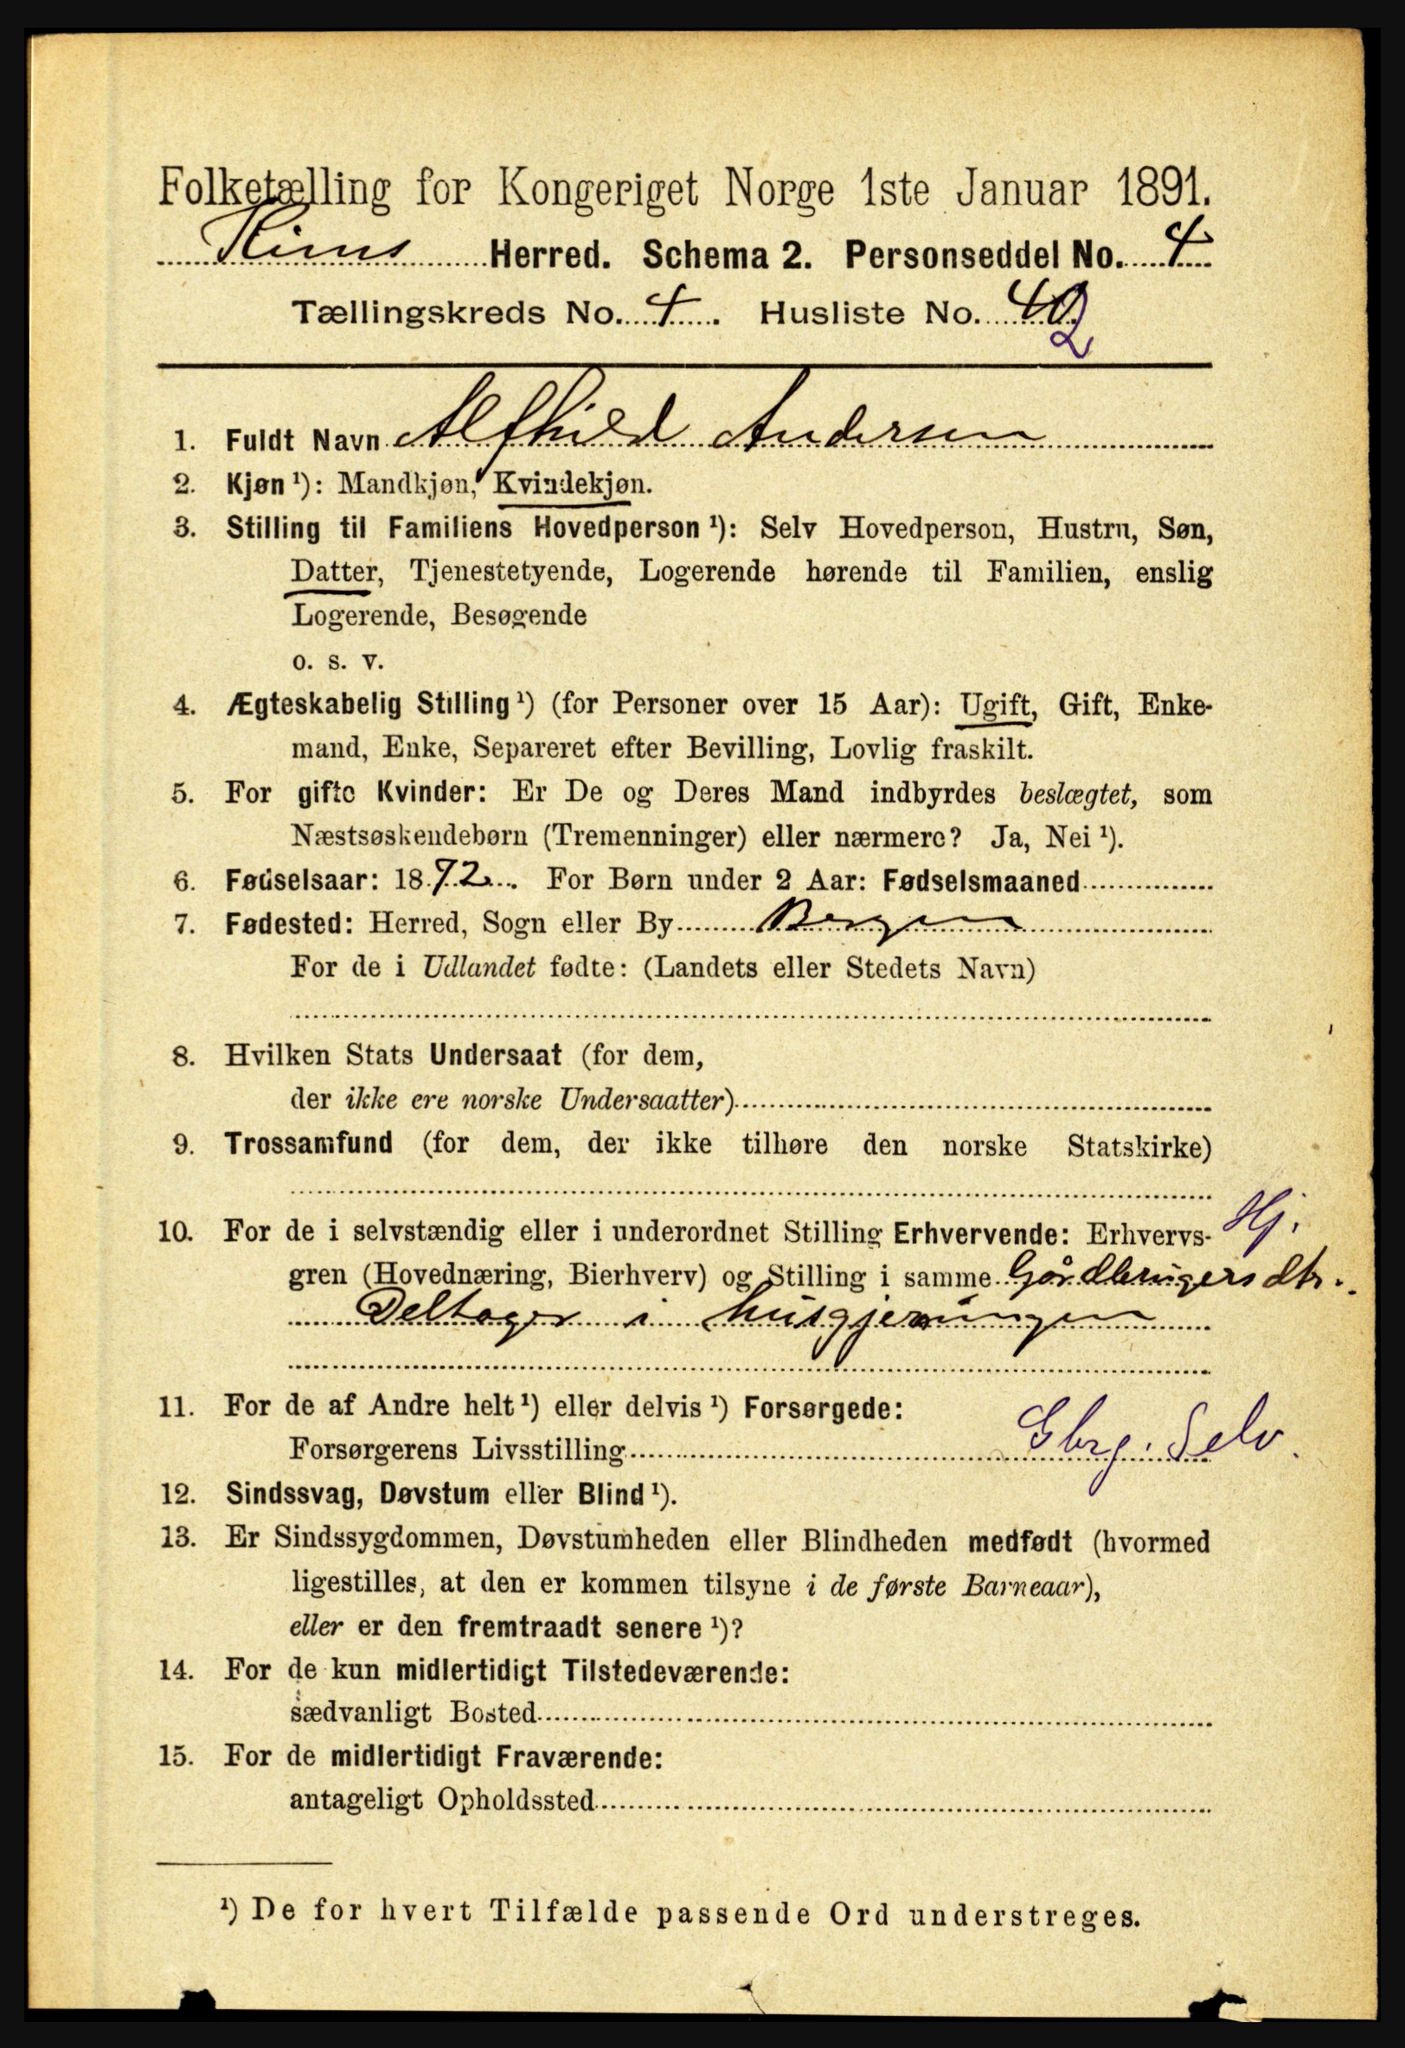 Folketælling for Kongeriget Norge 1ste Januar 1891.
Kinns Herred. Schema 2. Personseddel No. 4
Tællingskreds No. 4. Husliste No. 40 2
1. Fuldt Navn Alfhild Andersen
2. Kjøn ¹): Mandkjøn, Kvindekjøn.
3. Stilling til Familiens Hovedperson ¹): Selv Hovedperson, Hustru, Søn,
Datter, Tjenestetyende, Logerende hørende til Familien, enslig
Logerende, Besøgende
o. s. v.
4. Ægteskabelig Stilling ¹) (for Personer over 15 Aar): Ugift, Gift, Enke-
mand, Enke, Separeret efter Bevilling, Lovlig fraskilt.
5. For gifte Kvinder: Er De og Deres Mand indbyrdes beslægtet, som
Næstsøskendebørn (Tremenninger) eller nærmere? Ja, Nei ¹).
6. Fødselsaar: 1872. For Børn under 2 Aar: Fødselsmaaned
7. Fødested: Herred, Sogn eller By Bergen
For de i Udlandet fødte: (Landets eller Stedets Navn)
8. Hvilken Stats Undersaat (for dem,
der ikke ere norske Undersaatter)
9. Trossamfund (for dem, der ikke tilhøre den norske Statskirke)
Hj.
10. For de i selvstændig eller i underordnet Stilling Erhvervende: Erhvervs-
gren (Hovednæring, Bierhverv) og Stilling i samme Gårdbrugers dtr.
Deltager i husgjerningen
11. For de af Andre helt ¹) eller delvis ¹) Forsørgede:
Forsørgerens Livsstilling Gbrg. Selv.
12. Sindssvag, Døvstum eller Blind ¹).
13. Er Sindssygdommen, Døvstumheden eller Blindheden medfødt (hvormed
ligestilles, at den er kommen tilsyne i de første Barneaar),
eller er den fremtraadt senere ¹)?
14. For de kun midlertidigt Tilstedeværende:
sædvanligt Bosted
15. For de midlertidigt Fraværende:
antageligt Opholdssted
¹) De for hvert Tilfælde passende Ord understreges.